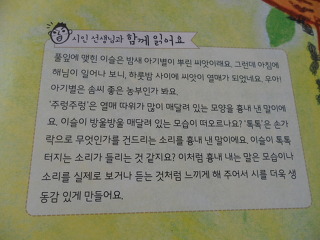 시인 선생님과 함께 읽어요
풀잎에 맺힌 이슬은 밤새 아기별이 뿌린 씨앗이래요. 그런데 아침에
해님이 일어나 보니, 하룻밤 사이에 씨앗이 열매가 되었네요. 우아!
아기별은 솜씨 좋은 농부인가 봐요.
'주렁주렁'은 열매 따위가 많이 매달려 있는 모양을 흉내 낸 말이에
요. 이슬이 방울방울 매달려 있는 모습이 떠오르나요? '톡톡'은 손가
락으로 무엇인가를 건드리는 소리를 흉내 낸 말이에요. 이슬이 톡톡
터지는 소리가 들리는 것 같지요? 이처럼 흉내 내는 말은 모습이나
소리를 실제로 보거나 듣는 것처럼 느끼게 해 주어서 시를 더욱 생
동감 있게 만들어요.